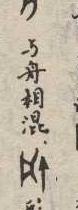 与舟相混，